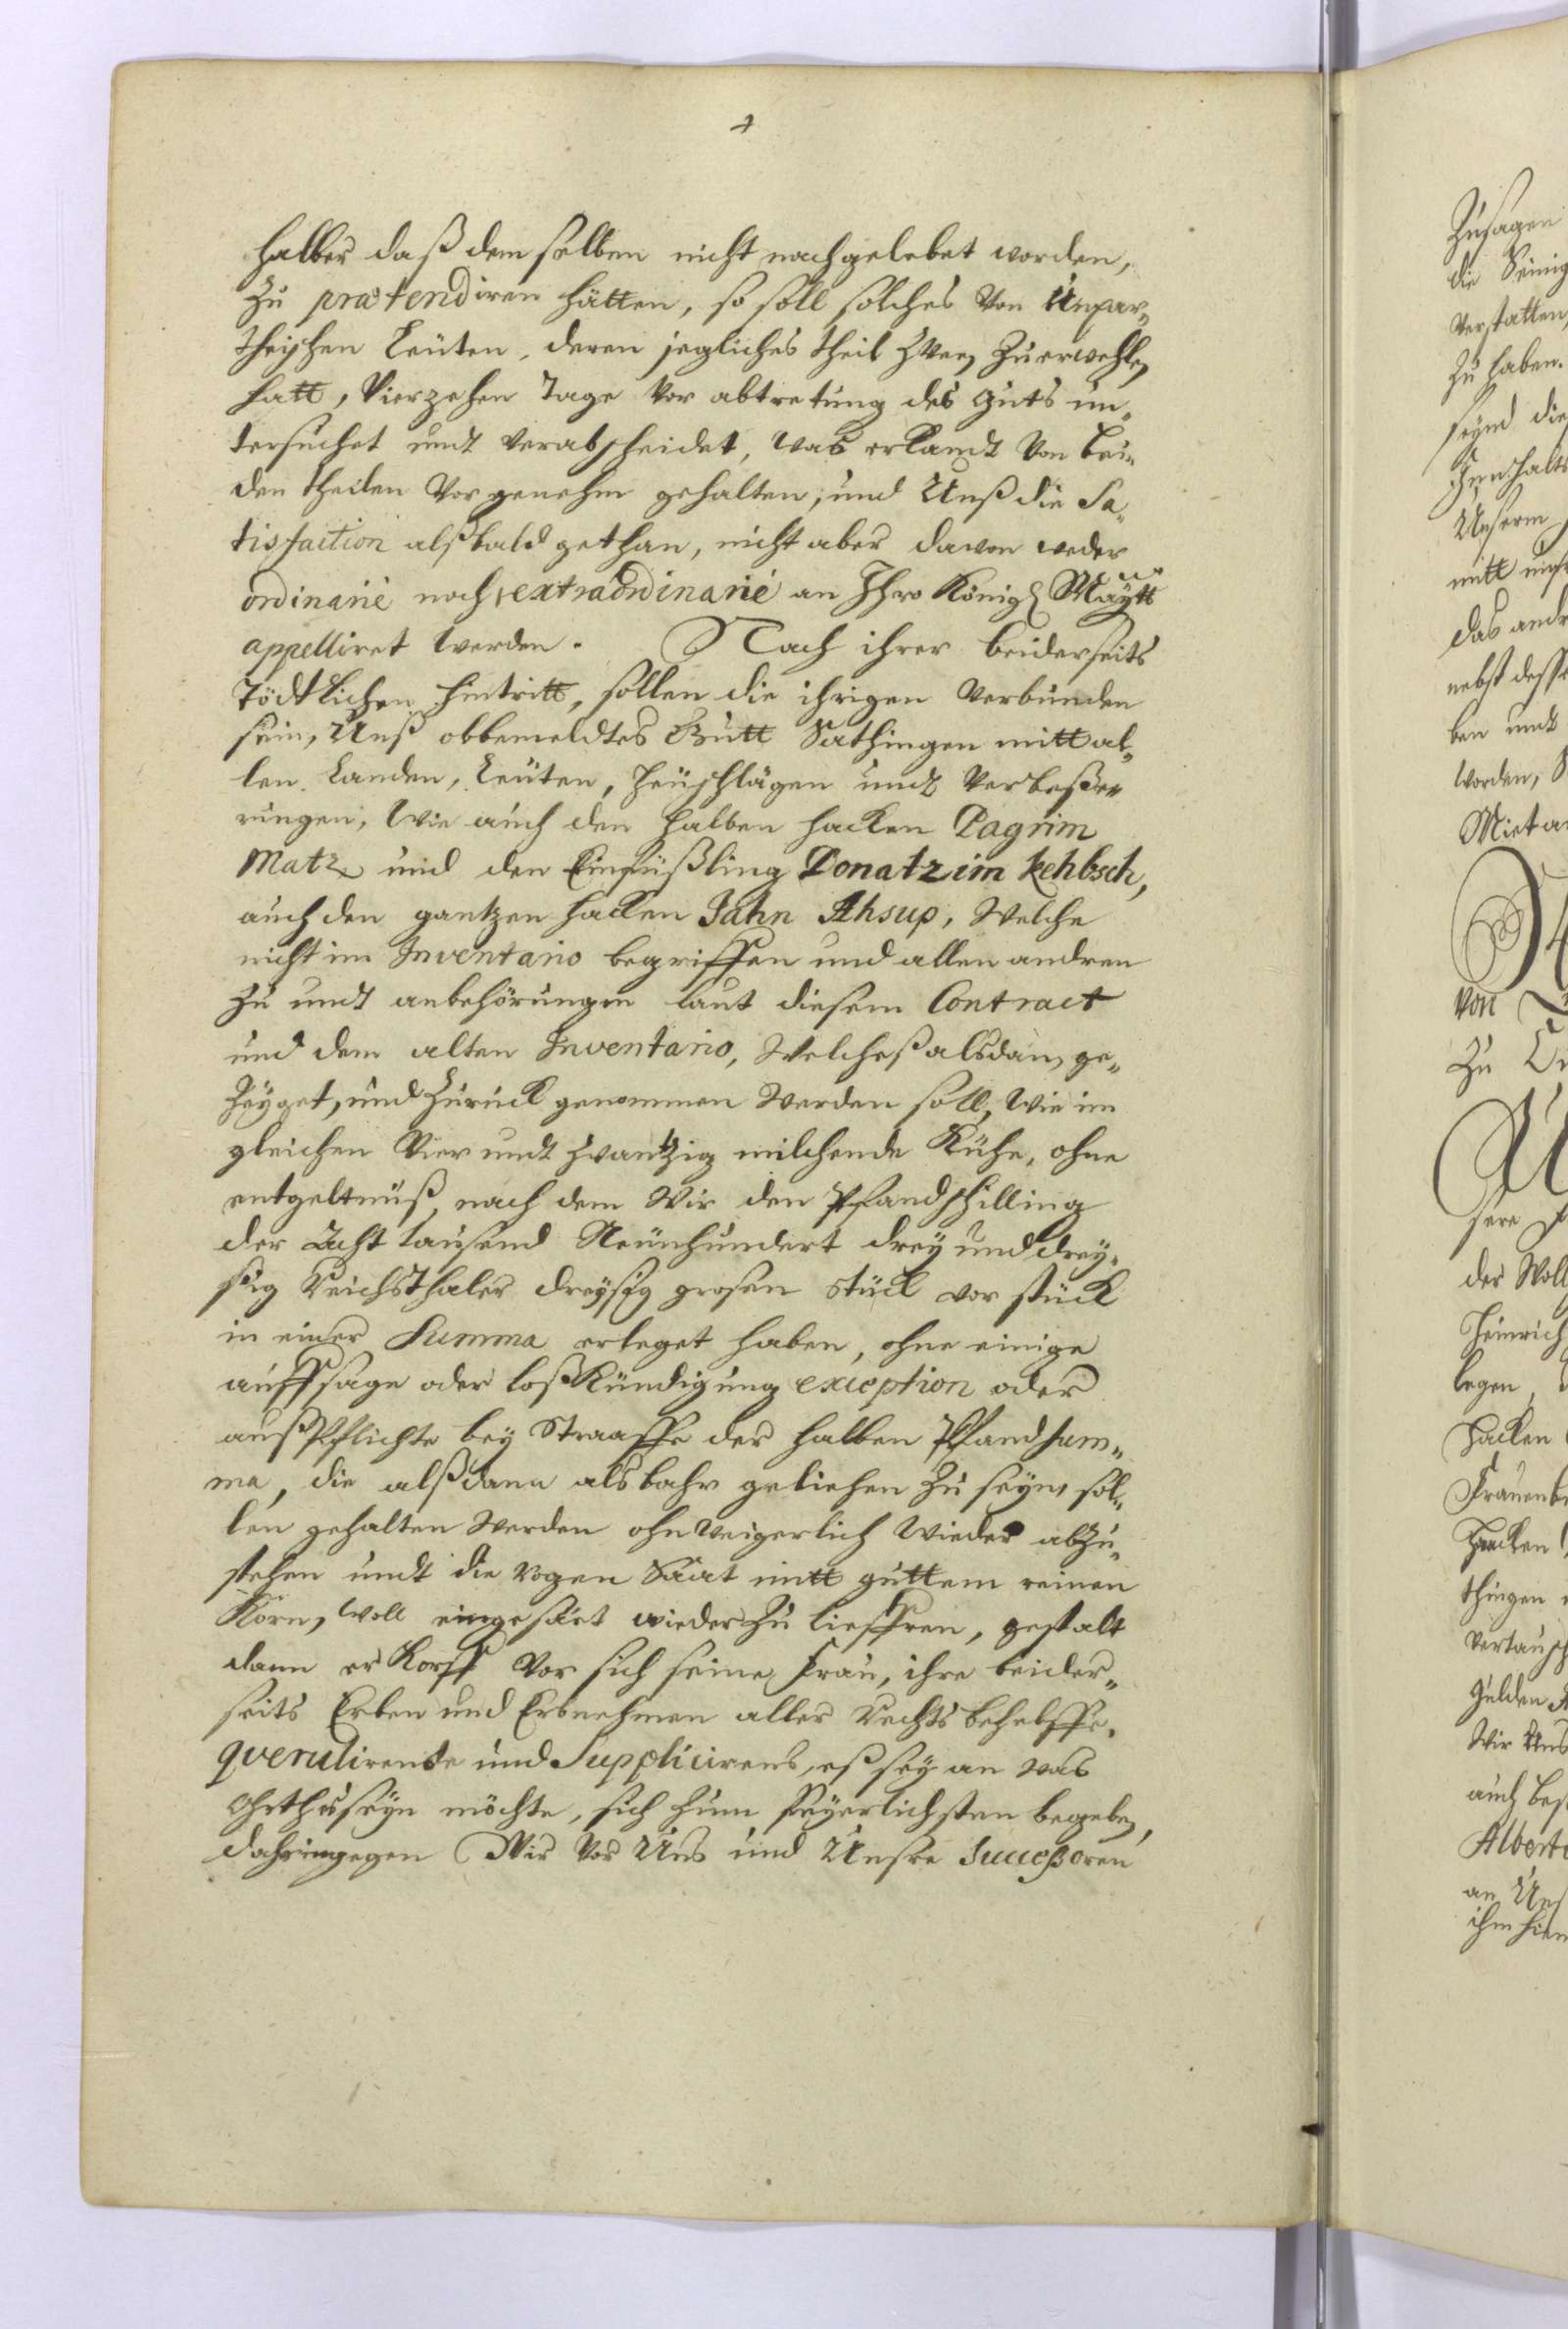 halber daß demselben nicht nachgelebet worden,
zu prætendiren hätten, so soll solches von Unpar„
theyschen Leüten, deren jegliches theil zween zu erwehlen
hatt, Vierzehen Tage vor abtretung des Guts un„
tersuchet undt verabscheidet, was erkandt von bei„
den theilen vor genehm gehalten, und Unß die Sa„
tisfaction alßbald gethan, nicht aber davon weder
ordinariè noch extraordinariè an Ihro Königl Maÿtt
appelliret werden. Nach ihrer beiderseits
Tödtlichen hintritt, sollen die ihrigen verbunden
sein, Unß obbemeldtes Gutt Sathingen mitt al„
len Landen, Leüten, Heüschlägen undt verbeße„
rungen, wie auch den halben hacken Pagrim
Matz und den Einfüßling Donatz im kehbsch,
auch den gantzen hacken Jahn Ahsup, Welche
nicht im Inventario begriffen und allen andren
zu undt anbehörungen laut diesem Contract
und dem alten Inventario, Welcheß alsdan ge„
zeyget, und zurück genommen werden soll, wie im
gleichen Vier undt zwantzig milchende Kühe, ohne
entgeltnüß, nach dem Wir den Pfandschilling
der Acht tausend Neünhundert dreÿ und dreÿ„
ßig Reichsthaler dreÿsig grosen stück vor stück
in einer Summa erleget haben, ohne einige
auffsage oder loßkündigung exception oder
außpflichte beÿ Straaffe der halben Pfandsum„
ma, die alßdann als bahr geliehen zu seÿn, sol„
len gehalten werden ohnweigerlich wieder abzu„
stehen undt die Rogen Säat mitt guttem reinen
Korn, woll eingesäet wieder zu lieffren, gestalt
dann er Korff vor sich seine Frau, ihre beider„
seits Erben und Erbnehmen aller Rechts behelffe,
querulirens und Supplicirens, eß seÿ an was
Orth es seÿn möchte, sich zum feÿerlichsten begeben,
dahingegen Wir vor Uns und Unsre Succeßoren
Zusagen
die Seinig
verstatten,
zu haben.
seynd die
Unserm
mitt
das andr
nebst desse
ben undt
worden,
von
zu
sere
der Woll
Heinrich
legen,
Hacken
Frauenb
Hacken
thingen
vertausch
Gülden
Wir Uns
auch bes
Albert
an Uns
ihm hier